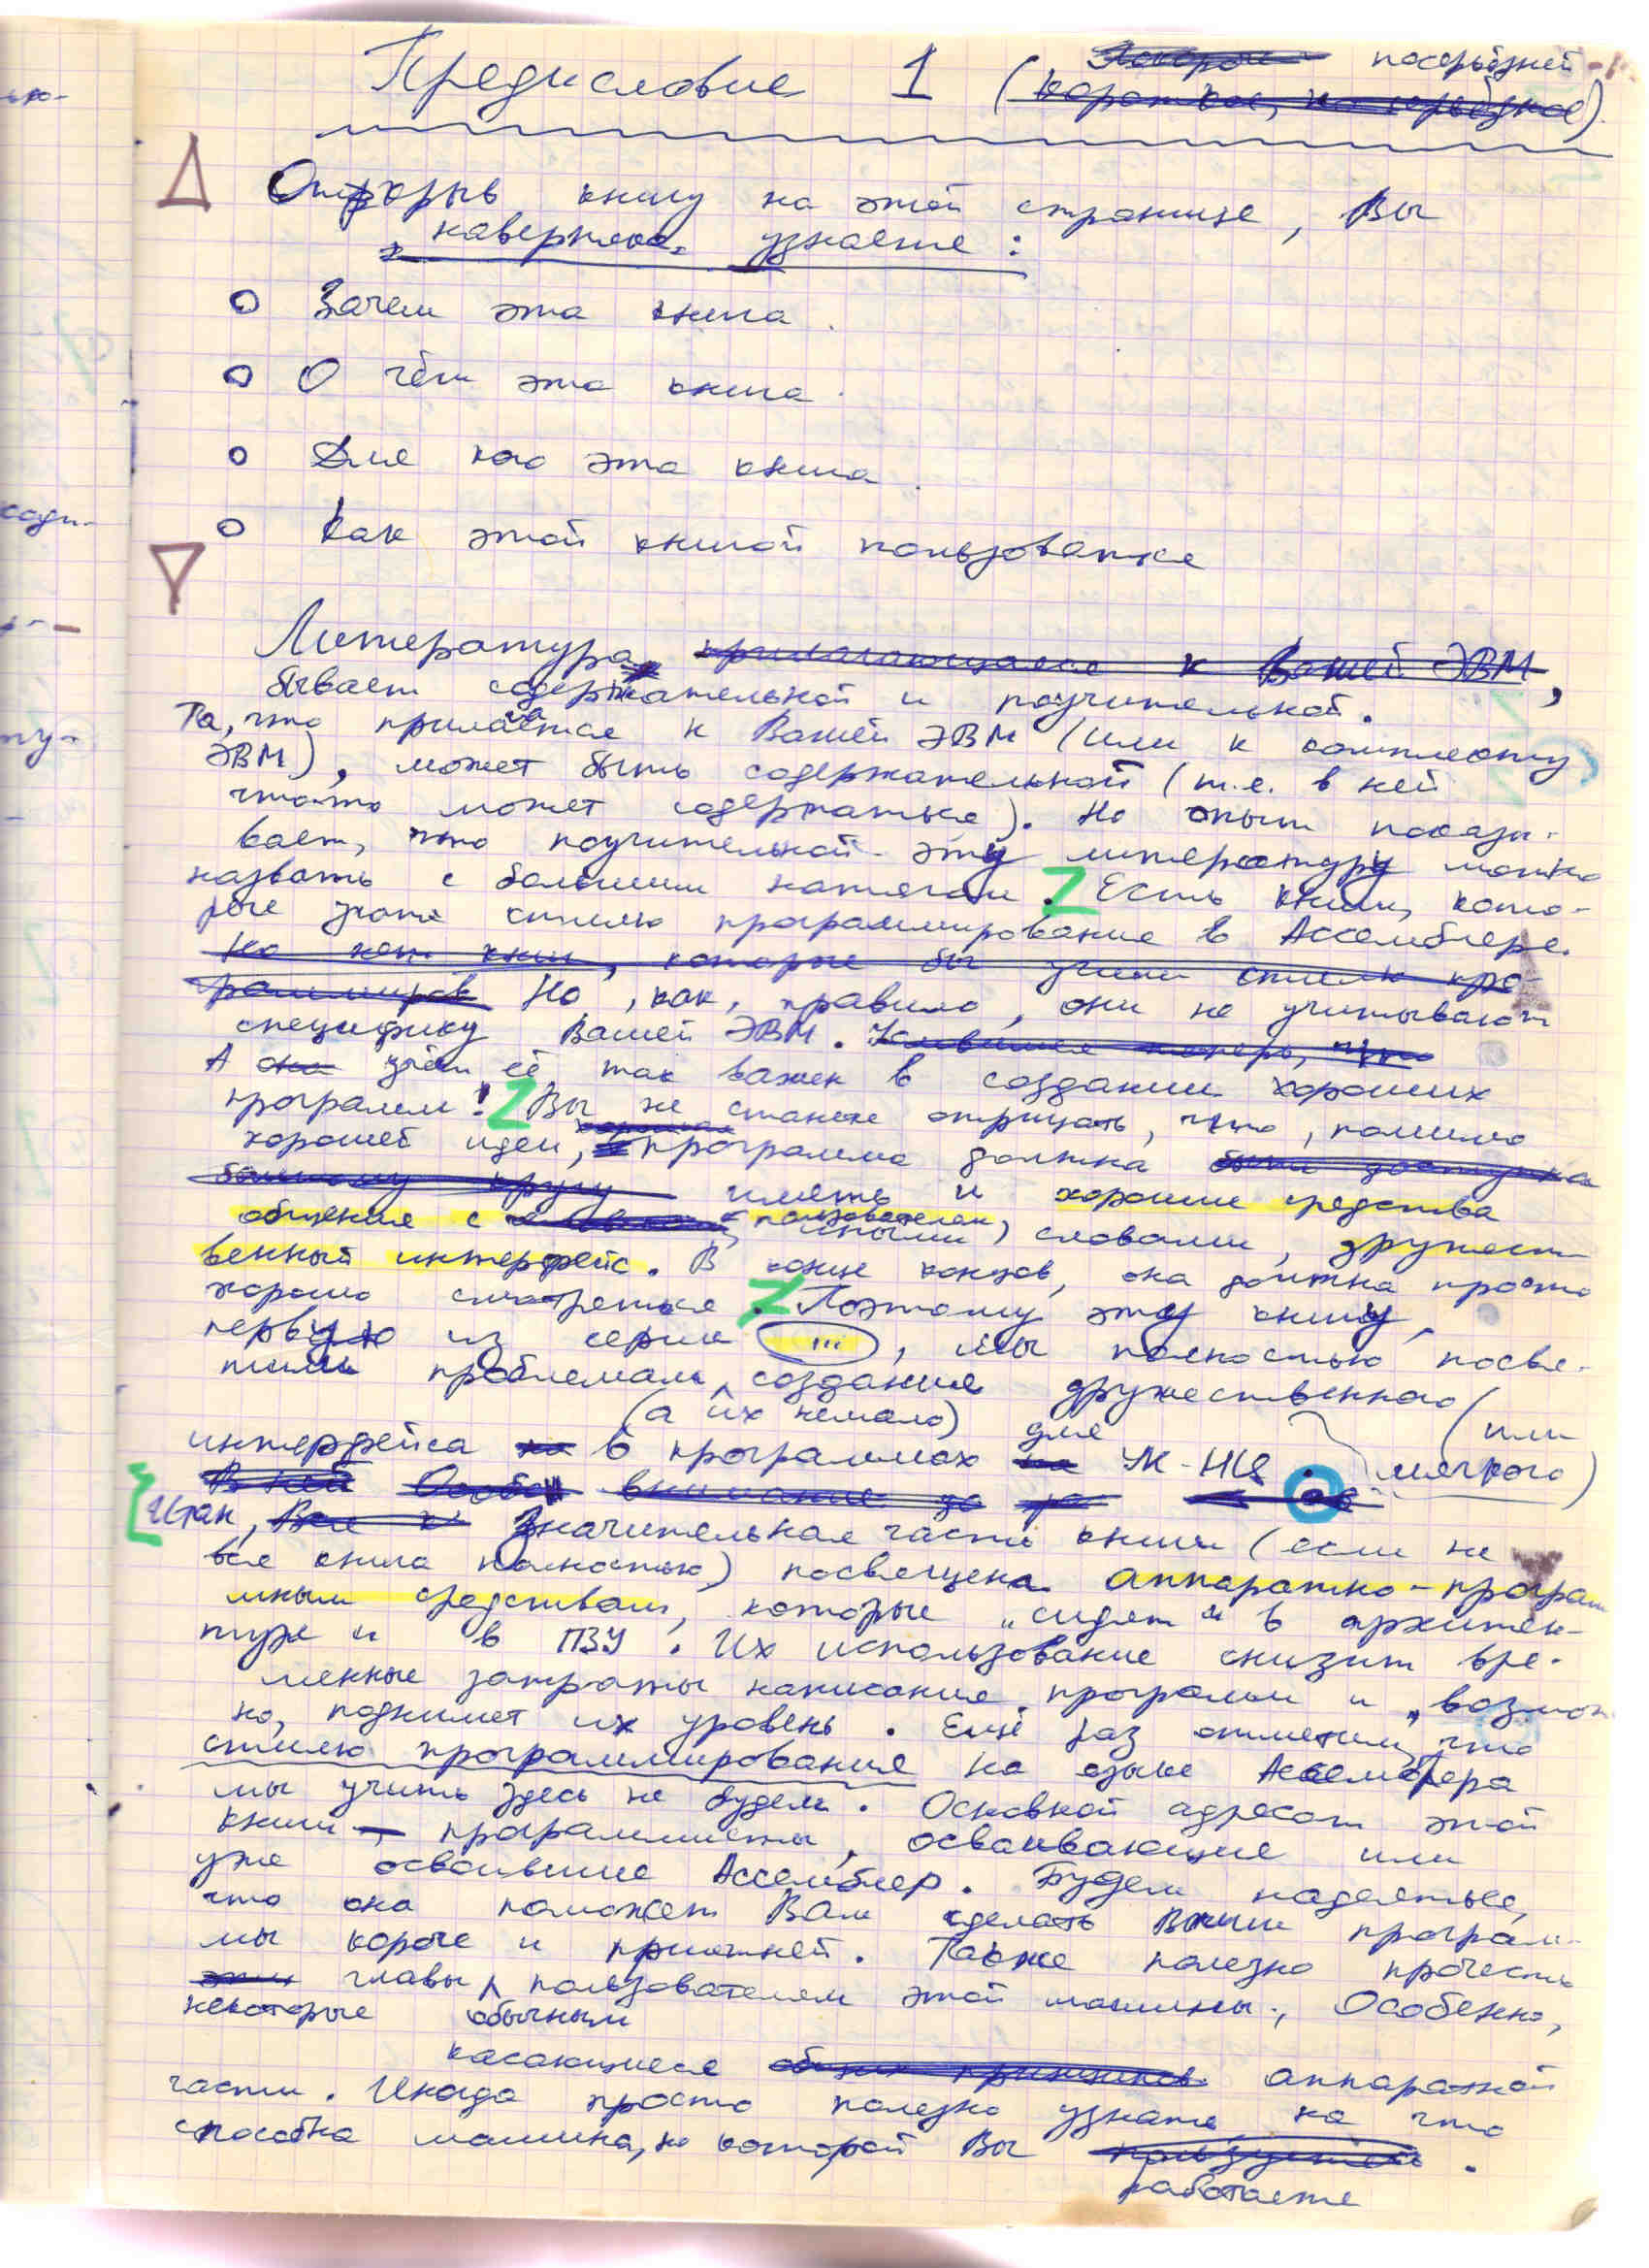 Предисловие 1 (посерьёзней)
Открыв книгу на этой странице, Вы
наверняка узнаете:
Зачем эта книга.
О чём эта книга.
Для кого эта книга.
Как этой книгой пользоваться
Литература прилагающаяся к Вашей ЭВМ,
бывает содержательной и поучительной.
Та, что прилагается к Вашей ЭВМ (или к комплекту
ЭВМ), может быть содержательной (т.е. в ней
что-то может содержаться). Но опыт показы-
вает, что поучительной эту литературу можно
назвать с большим натягом. Есть книги, кото-
рые учат стилю программирования в Ассемблере.
Но нет книг, которые бы учили стилю про-
граммиров Но, как, правило, они не учитывают
специфику Вашей ЭВМ.
А учёт её так важен в создании хороших
программ! Вы не станете отрицать, что, помимо
хорошей идеи, программа должна быть доступна
большому кругу иметь и хорошие средства
общения с пользователем, иными словами, дружест-
венный интерфейс. В конце концов, она должна просто
хорошо смотреться. Поэтому эту книгу,
первую из серии ..., мы полностью посвя-
тили проблемам создания дружественного (или
(а их немало) для мягкого)
интерфейса в программах УК-НЦ.
В ней Особое внимание
Итак, Значительная часть книги (если не
вся книга полностью) посвящена аппаратно-програм
мным средствам, которые „сидят" в архитек-
туре и в ПЗУ. Их использование снизит вре-
менные затраты написания программ и, возмож
но, поднимет их уровень. Ещё раз отметим, что
стилю программирования на языке Ассемблера
мы учить здесь не будем. Основной адресат этой
книги – программисты, осваивающие или
уже освоившие Ассемблер. Будем надеяться,
что она поможет Вам сделать Ваши програм-
мы короче и приятней. Также полезно прочесть
главы пользователям этой машины, Особенно,
некоторые обычным
касающиеся общих принципов аппаратной
части. Иногда просто полезно узнать, на что
способна машина, на которой Вы пользуетесь.
работаете